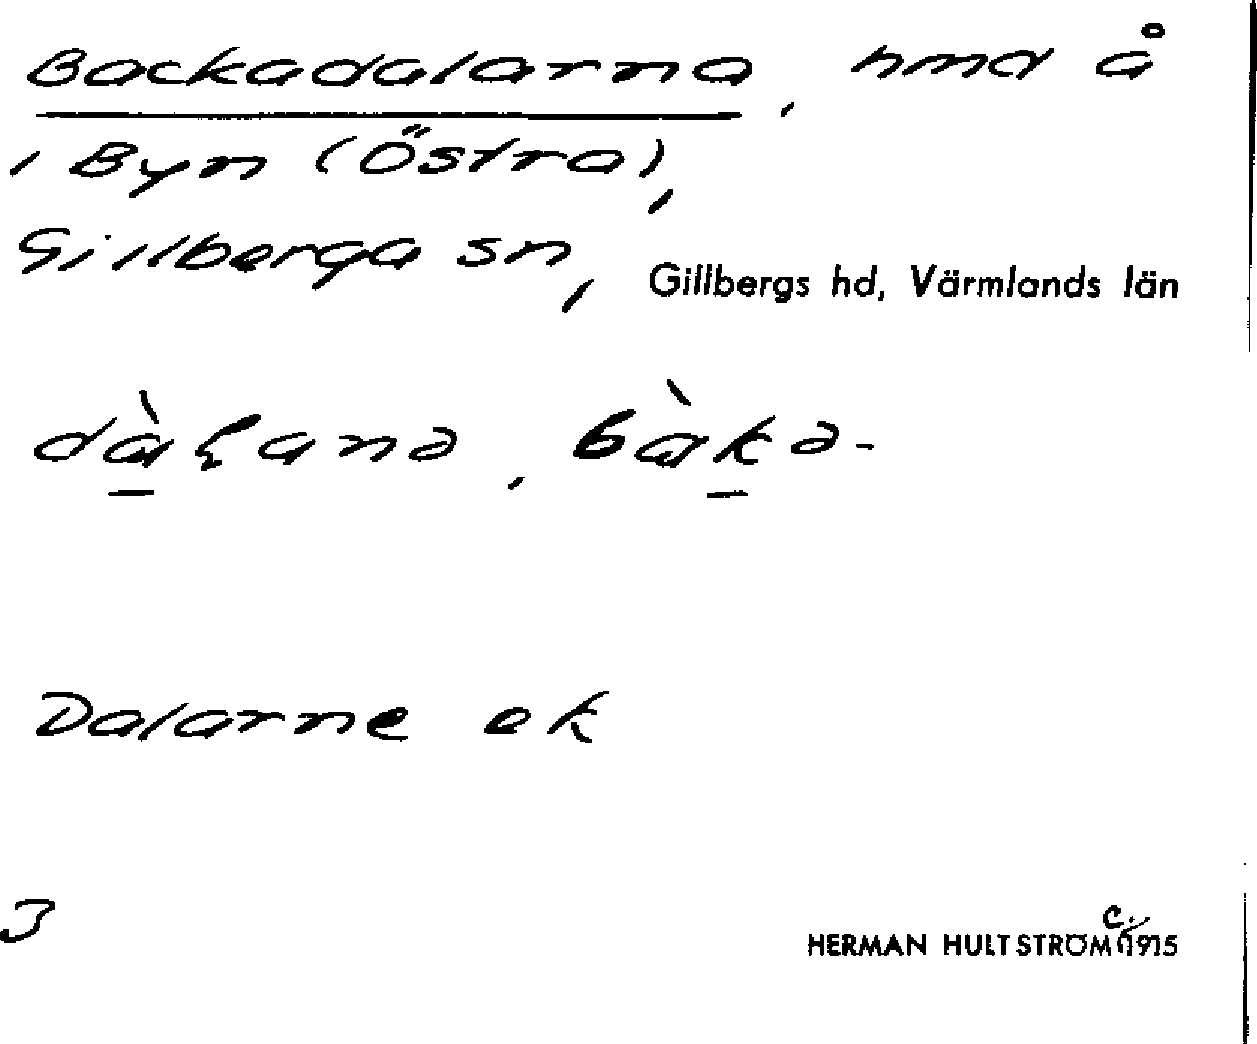 Backadalarna, hmd å
i Byn (Östra),
Gillberga sn, Gillbergs hd, Värmlands län
dàɽanə, bàkə-
Dalarne ek
3
HERMAN HULTSTRÖM c. 1915